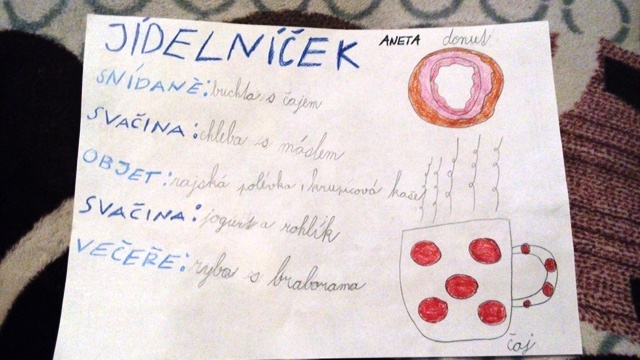 JÍDELNÍČEK
ANETA
donut
SNÍDANĚ: buchta s čajem
SVAČINA: chleba s máslem
OBJET: rajská polévka, krupicová kaše
SVAČINA: jogurt a rohlík
VEČEŘE: ryba s braborama
čaj